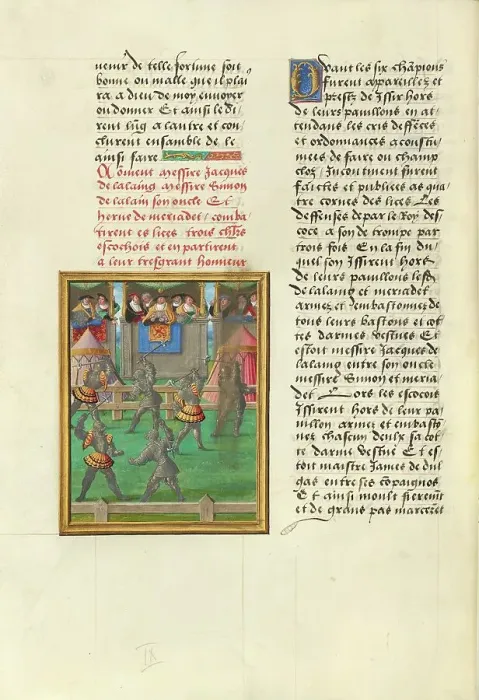 venir de telle fortune soit
bonne ou malle que il plai
ra a dieu de moy envoyer
ou donner Et ainsi le di
rent lug a lautre et con
clurent ensamble de le
ainsi faire
Coment messire Jacques
de lalaing messire Simon
de lalain son oncle Et
herve de meriadet comba
tirent es lices trois chlrs
escochois et en partirent
a leur tresgrant honneur
Quant les six chāpions
furent appareilliez et
prestz de yssir hors
de leurs pavillons en at
tendans les cris deffēces
et ordonnances acoustu
mees de faire ou champ
cloz Incontinent furent
faictes et publiees as qua
tre cornes des lices Les
deffenses de par le Roy des
coce a son de trompe par
trois fois En la fin du
quel son yssirent hors
de leurs pavillons lesdis
de lalaing et meriadet
armez et embastonnez de
tous leurs bastons et cot
tes darmes vestues Et
estoit messire Jacques de
lalaing entre son oncle
messire Simon et meria
det Lors les escocois
yssirent hors de leur pa
villon armez et embasto
nez chascun deulx sa cot
te darme vestue Et es
toit maistre James de du
glas entre ses cōpaignos
Et ainsi moult fieremt
et de grans pas marcerēt
IX